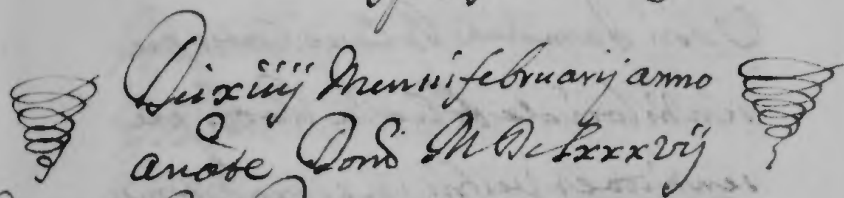 Die xiiij Mensis februarij anno
a nāte Domī M Dc Lxxxvij